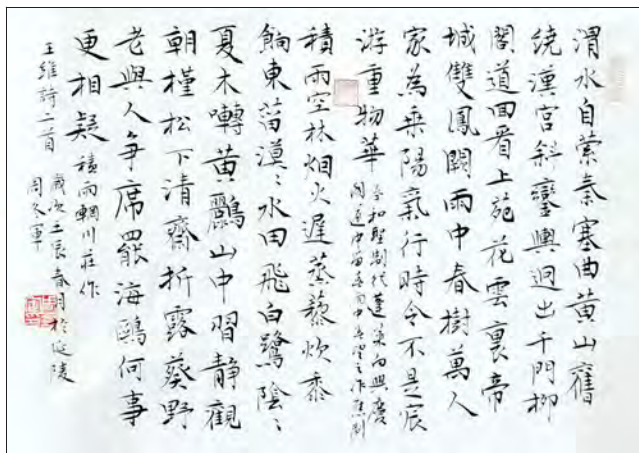 渭水自縈秦塞曲黃山舊
繞漢宮斜鑾輿迥出千門柳
閣道回看上苑花雲裏帝
城雙鳳闕雨中春樹萬人
家為乘陽氣行時令不是宸
游重物華
奉和聖制從蓬萊向興慶
閣道中留春雨中春望之作應制
積雨空林烟火遲蒸藜炊黍
餉東菑漠〻水田飛白鷺陰〻
夏木囀黃鸝山中習靜觀
朝槿松下清齋折露葵野
老與人爭席罷海鷗何事
更相疑 積雨輞川莊作
王維詩二首 歲次壬辰春月於延陵
周冬軍